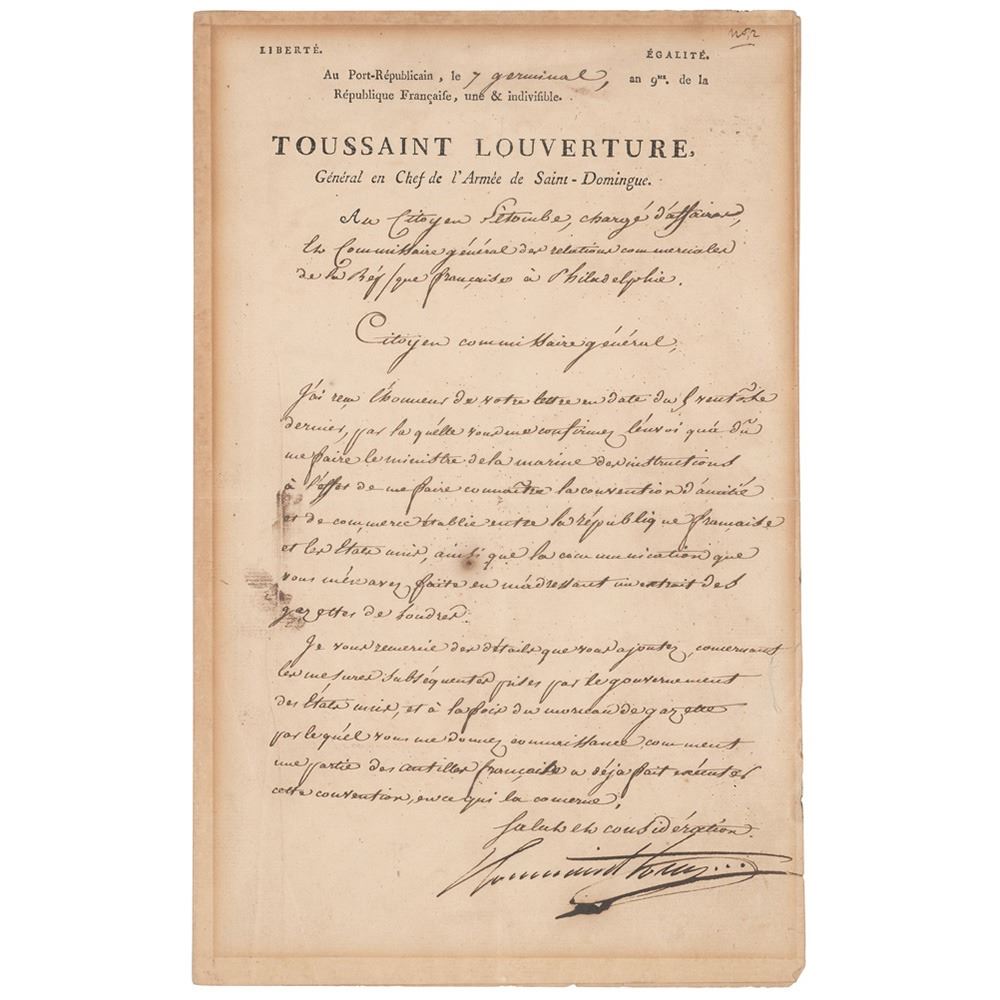 nº 2
LIBERTÉ. ÉGALITÉ.
Au Port-Républicain, le 7 germinal, an 9me. de la
République Françaiſe, une & indiviſible.
TOUSSAINT LOUVERTURE,
Général en Chef de l'Armée de Saint-Domingue.
Au Citoyen Létombe, chargé d'affaires,
et Commissaire général des relations commerciales
de la Rép/que française à Philadelphie.
Citoyen commissaire général,
J'ai reçu l'honneur de votre lettre en date du 5 ventôse
dernier, par la quélle vous me confirmez l'envoi qu'a dû
me faire le ministre de la marine des instructions
à l'effet de me faire connaître la convention d'amitié
et de commerce établie entre la république française
et les États unis, ainsi que la communication que
vous m'én avez faite en m'adressant un extrait des
gazettes de Londres.
Je vous remercie des détails que vous ajoutez, concernant
les mesures subséquentes prises par le gouvernement
des États unis, et à la fois du morceau de gazette
par le quél vous me donnez connaissance comment
une partie des antilles française a déja fait exécuter
cette convention, en ce qui la concerne.
Salut et considération.
Toussaint Louverture